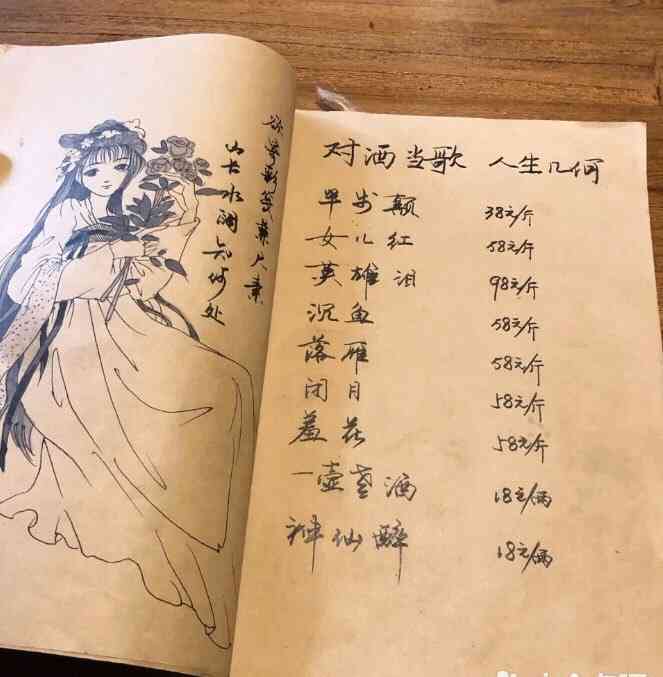 欲寄彩笺兼尺素
山长水阔知何处
对酒当歌 人生几何
半步颠 38元/斤
女儿红 58元/斤
英雄泪 98元/斤
沉鱼 58元/斤
落雁 58元/斤
闭月 58元/斤
羞花 58元/斤
一壶老酒 18元/两
神仙醉 18元/两